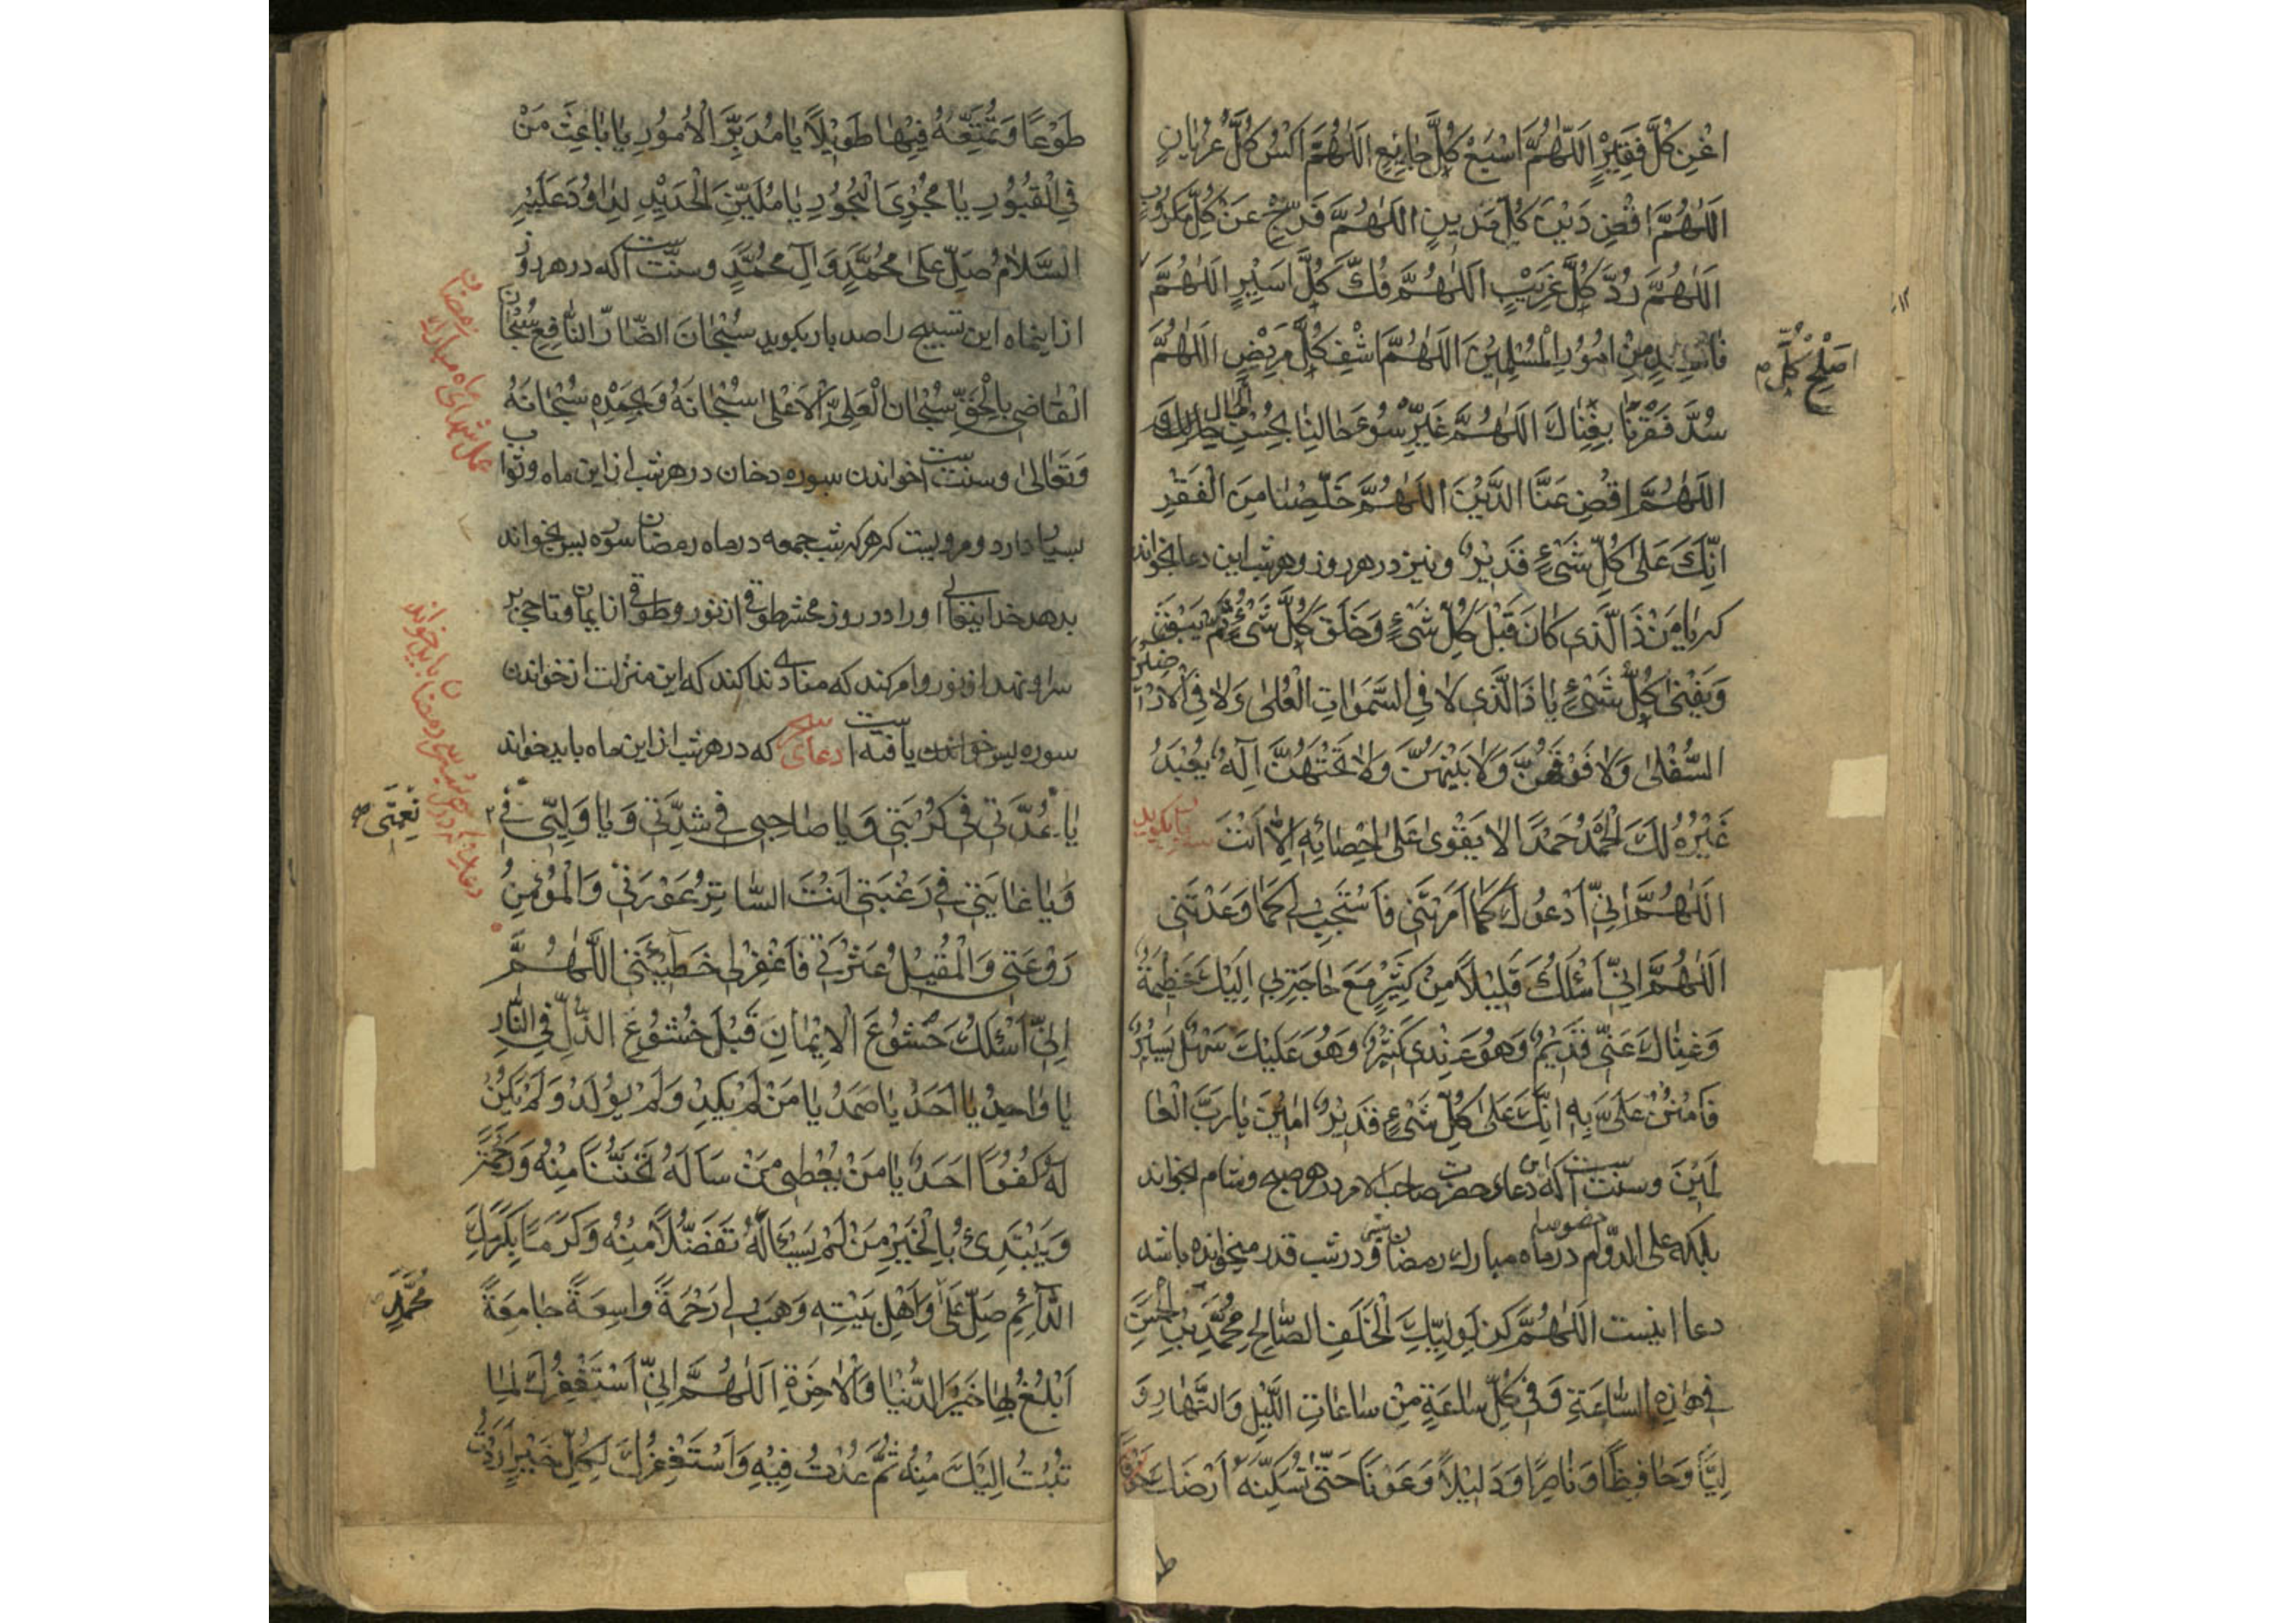 اغْنِ كُلَّ فَقِيْرٍ اَللّٰهُمَّ اَشْبِعْ كُلَّ جَايِعٍ اَللّٰهُمَّ اكْسُ كُلَّ عُرْيَانٍ
اَللّٰهُمَّ اقْضِ دَيْنَ كُلِّ مَدِينٍ اَللّٰهُمَّ فَرِّجْ عَنْ كُلِّ مَكْرُوبٍ
اَللّٰهُمَّ رُدَّ كُلَّ غَرِيْبٍ اَللّٰهُمَّ فُكَّ كُلَّ اَسِيْرٍ اَللّٰهُمَّ
اَصْلِحْ كُلَّ
فَاسِدٍ مِنْ اُمُوْرِ الْمُسْلِمِيْنَ اَللّٰهُمَّ اشْفِ كُلَّ مَرِيْضٍ اَللّٰهُمَّ
سُدَّ فَقْرَنَا بِغِنَاكَ اَللّٰهُمَّ غَيِّرْ سُوْءَ حَالِنَا بِحُسْنِ حَالِكَ
اَللّٰهُمَّ اقْضِ عَنَّا الدَّيْنَ اَللّٰهُمَّ خَلِّصْنَا مِنَ الْفَقْرِ
اِنَّكَ عَلٰى كُلِّ شَىْءٍ قَدِيْرٌ ونيز در هر روز وهر شب اين دعا بخواند
كه يَا مَنْ ذَا الَّذِى كَانَ قَبْلَ كُلِّ شَىْءٍ وَخَلَقَ كُلَّ شَىْءٍ ثُمَّ يَبْقٰى
وَيَفْنٰى كُلُّ شَىْءٍ يَا ذَا الَّذِى لَا فِى السَّمٰوَاتِ الْعُلٰى وَلَا فِى الْاَرَضِيْنَ
السُّفْلٰى وَلَا فَوْقَهُنَّ وَلَا بَيْنَهُنَّ وَلَا تَحْتَهُنَّ اِلٰهٌ يُعْبَدُ
غَيْرُهُ لَكَ الْحَمْدُ حَمْدًا لَا يَقْوٰى عَلٰى اِحْصَائِهِ اِلَّا اَنْتَ
اَللّٰهُمَّ اِنِّى اَدْعُوْكَ كَمَا اَمَرْتَنِى فَاسْتَجِبْ لِى كَمَا وَعَدْتَنِى
اَللّٰهُمَّ اِنِّى اَسْئَلُكَ قَلِيْلًا مِنْ كَثِيْرٍ مَعَ حَاجَةٍ بِى اِلَيْكَ عَظِيْمَةٌ
وَغِنَاكَ عَنِّى قَدِيْمٌ وَهُوَ عِنْدِى كَثِيْرٌ وَهُوَ عَلَيْكَ سَهْلٌ يَسِيْرٌ
فَامْنُنْ عَلَىَّ بِهِ اِنَّكَ عَلٰى كُلِّ شَىْءٍ قَدِيْرٌ اٰمِيْنَ يَا رَبَّ الْعَا
لَمِيْنَ وسنتست كه اين دعاى حضرت صاحب الامر در هر صبح وشام بخواند
بلكه على الدّوام خصوصا در ماه مبارك رمضان ودر شب قدر ميخوانده باشد
دعا اينست اَللّٰهُمَّ كُنْ لِوَلِيِّكَ الْخَلَفِ الصَّالِحِ مُحَمَّدِ بْنِ الْحَسَنِ
فِى هٰذِهِ السَّاعَةِ وَفِى كُلِّ سَاعَةٍ مِنْ سَاعَاتِ اللَّيْلِ وَالنَّهَارِ وَ
لِيًّا وَحَافِظًا وَنَاصِرًا وَدَلِيْلًا وَعَوْنًا حَتّٰى تُسْكِنَهُ اَرْضَكَ
طَوْعًا وَتُمَتِّعَهُ فِيْهَا طَوِيْلًا يَا مُدَبِّرَ الْاُمُوْرِ يَا بَاعِثَ مَنْ
فِى الْقُبُوْرِ يَا مُجْرِىَ الْبُحُوْرِ يَا مُلَيِّنَ الْحَدِيْدِ لِدَاوُدَ عَلَيْهِ
السَّلَامُ صَلِّ عَلٰى مُحَمَّدٍ وَآلِ مُحَمَّدٍ وسنّتست كه در هر روز
از اينماه اين تسبيح را صد بار بكويد سُبْحَانَ الضَّارِّ النَّافِعِ سُبْحَانَ
الْقَاضِى بِالْحَقِّ سُبْحَانَ الْعَلِىِّ الْاَعْلٰى سُبْحَانَهُ وَبِحَمْدِهِ سُبْحَانَهُ
وَتَعَالٰى وسنتست خواندن سوره دخان در هر شب از اين ماه وثواب
بسيار دارد ومرويست كه هر كه شب جمعه در ماه رمضان سوره يس بخواند
بدهد خدايتعالى او را در روز محشر طوقى از نور وطوقى از ايمان وتاجى بر
سر او نهد از نور وامر كند كه منادى ندا كند كه اين منزلت از خواندن
سوره يس يافته است دعاى كه در هر شب از اين ماه بايد خواند
يَا عُدَّتِى فِى كُرْبَتِى وَيَا صَاحِبِى فِى شِدَّتِى وَيَا وَلِيِّى فِى
نِعْمَتِى
وَيَا غَايَتِى فِى رَغْبَتِى اَنْتَ السَّاتِرُ عَوْرَتِى وَالْمُؤْمِنُ
رَوْعَتِى وَالْمُقِيْلُ عَثْرَتِى فَاغْفِرْ لِى خَطِيْئَتِى اَللّٰهُمَّ
اِنِّى اَسْئَلُكَ خُشُوْعَ الْاِيْمَانِ قَبْلَ خُشُوْعِ الذُّلِّ فِى النَّارِ
يَا وَاحِدُ يَا اَحَدُ يَا صَمَدُ يَا مَنْ لَمْ يَلِدْ وَلَمْ يُوْلَدْ وَلَمْ يَكُنْ
لَهُ كُفُوًا اَحَدٌ يَا مَنْ يُعْطِى مَنْ سَاَلَهُ تَحَنُّنًا مِنْهُ وَرَحْمَةً
وَيَبْتَدِئُ بِالْخَيْرِ مَنْ لَمْ يَسْئَلْهُ تَفَضُّلًا مِنْهُ وَكَرَمًا بِكَرَمِكَ
الدَّائِمِ صَلِّ عَلٰى وَاَهْلِ بَيْتِهِ وَهَبْ لِى رَحْمَةً وَاسِعَةً جَامِعَةً
مُحَمَّدٍ
اَبْلُغُ بِهَا خَيْرَ الدُّنْيَا وَالْاٰخِرَةِ اَللّٰهُمَّ اِنِّى اَسْتَغْفِرُكَ لِمَا
تُبْتُ اِلَيْكَ مِنْهُ ثُمَّ عُدْتُ فِيْهِ وَاَسْتَغْفِرُكَ لِكُلِّ خَيْرٍ اَرَدْتُ